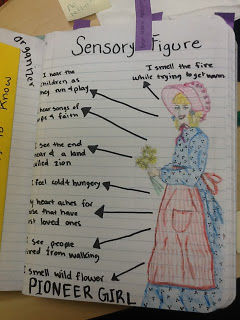 organizer
Know
Sensory Figure
I smell the fire
while trying to get warm
I hear the
children as
they run & play
hear songs of
& faith
I see the end
near & a land
called zion
I feel cold & hungry
My heart aches for
those that have
lost loved ones
I see people
tired from walking
I smell wild flower
PIONEER GIRL